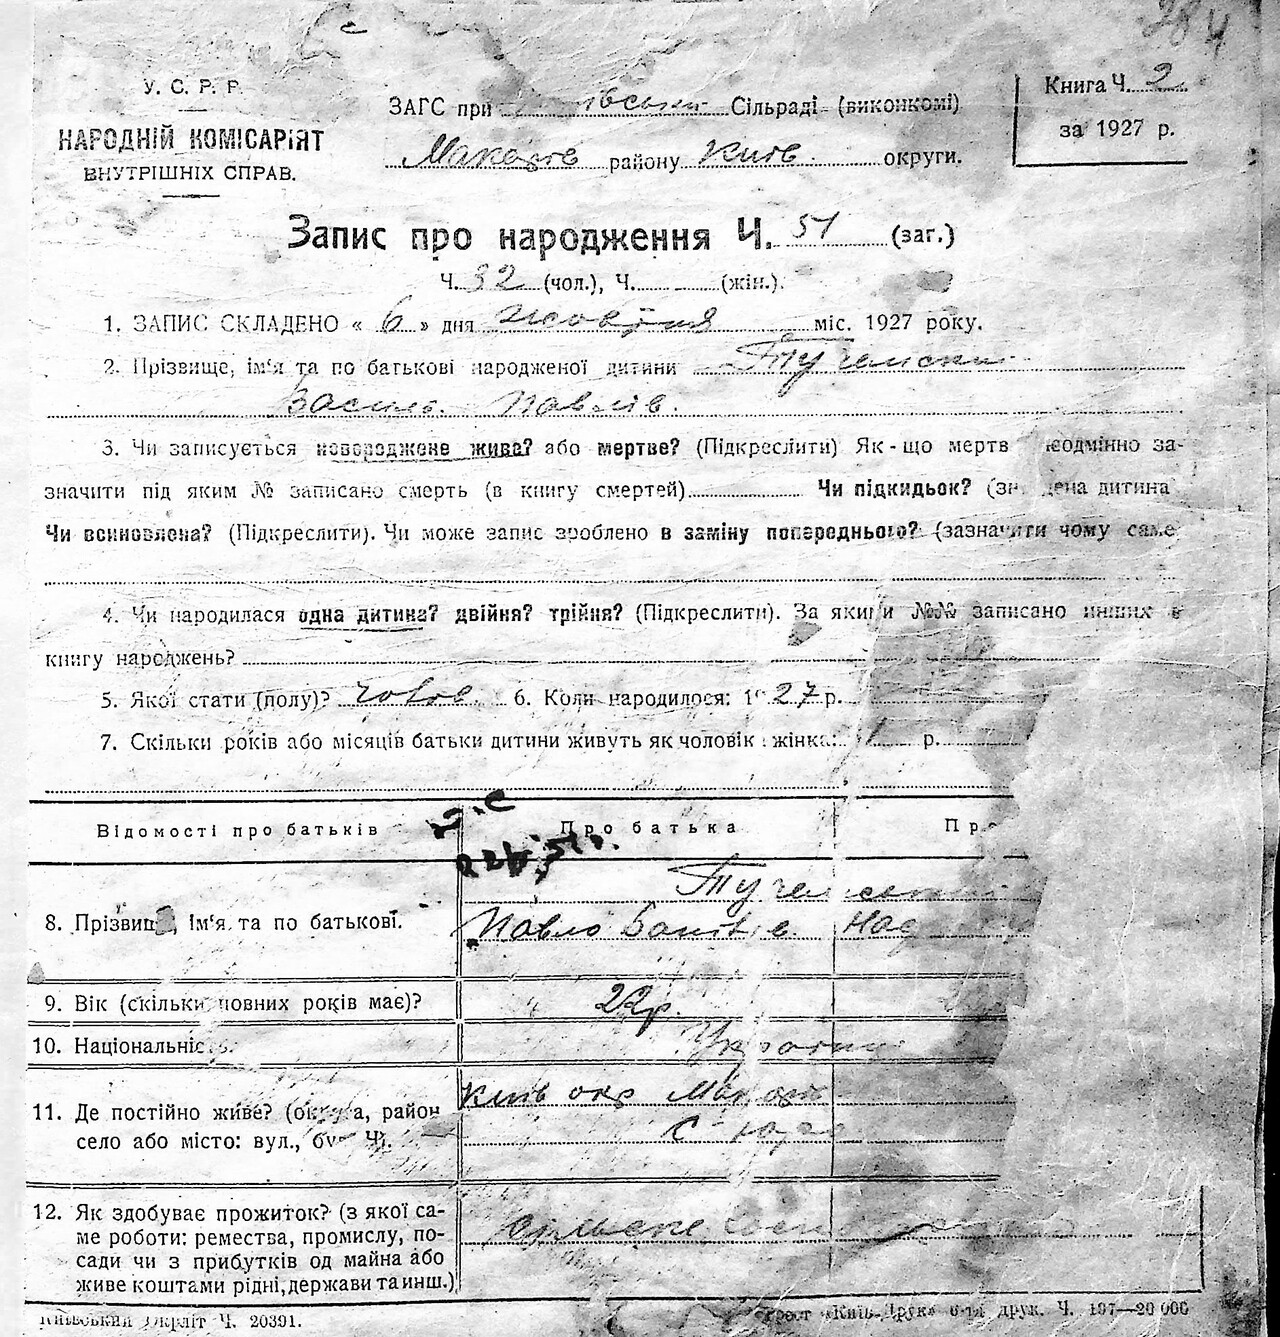 284
У. С. Р. Р.
НАРОДНІЙ КОМІСАРІЯТ
ВНУТРІШНІХ СПРАВ.
ЗАГС при Сільраді (виконкомі)
Макарів району Київ. округи.
Книга Ч. 2
за 1927 р.
Запис про народження Ч. 51 (заг.)
Ч. 32 (чол.), Ч. (жін.).
1. ЗАПИС СКЛАДЕНО « 6 » дня жовтня міс. 1927 року.
2. Прізвище, ім'я та по батькові народженої дитини
Василь Павлів.
3. Чи записується новороджене жива? або мертве? (Підкреслити) Як-що мертв за-
значити під яким № записано смерть (в книгу смертей) Чи підкидьок? (зн дена дитина
Чи всиновлена? (Підкреслити). Чи може запис зроблено в заміну попереднього? (зазначити чому саме
4. Чи народилася одна дитина? двійня? трійня? (Підкреслити). За якими №№ записано инших в
книгу народжень?
5. Якої стати (полу)? 6. Коли народилося: 1927 р.
7. Скільки років або місяців батьки дитини живуть як чоловік і жінка: 1 р.
Відомості про батьків Про батька
8. Прізвище, ім'я та по батькові.
Павло
9. Вік (скільки повних років має)? 22р.
10. Національність.
11. Де постійно живе? (округа, район
село або місто: вул., буд. Ч).
Київ окр Макарів
12. Як здобуває прожиток? (з якої са-
ме роботи: ремества, промислу, по-
сади чи з прибутків од майна або
живе коштами рідні, держави та инш.)
сільське
Київський Окрліт Ч. 20391.
Трест «Київ-Друк» друк. Ч. 197—20 000